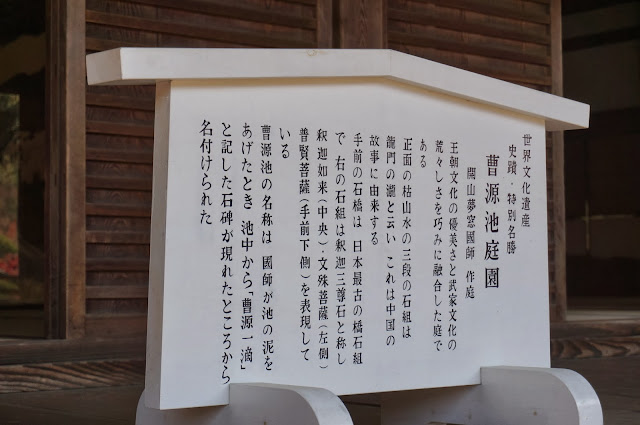 世界文化遺産
史蹟・特別名勝
曹源池庭園
開山夢窓國師 作庭
王朝文化の優美さと武家文化の
荒々しさを巧みに融合した庭で
ある
正面の枯山水の三段の石組は
龍門の瀧と云い これは中国の
故事に由来する
手前の石橋は 日本最古の橋石組
で 右の石組は釈迦三尊石と称し
釈迦如来(中央)・文殊菩薩(左側)
普賢菩薩(手前下側)を表現して
いる
曹源池の名称は 國師が池の泥を
あげたとき 池中から、「曹源一滴」
と記した石碑が現れたところから
名付けられた